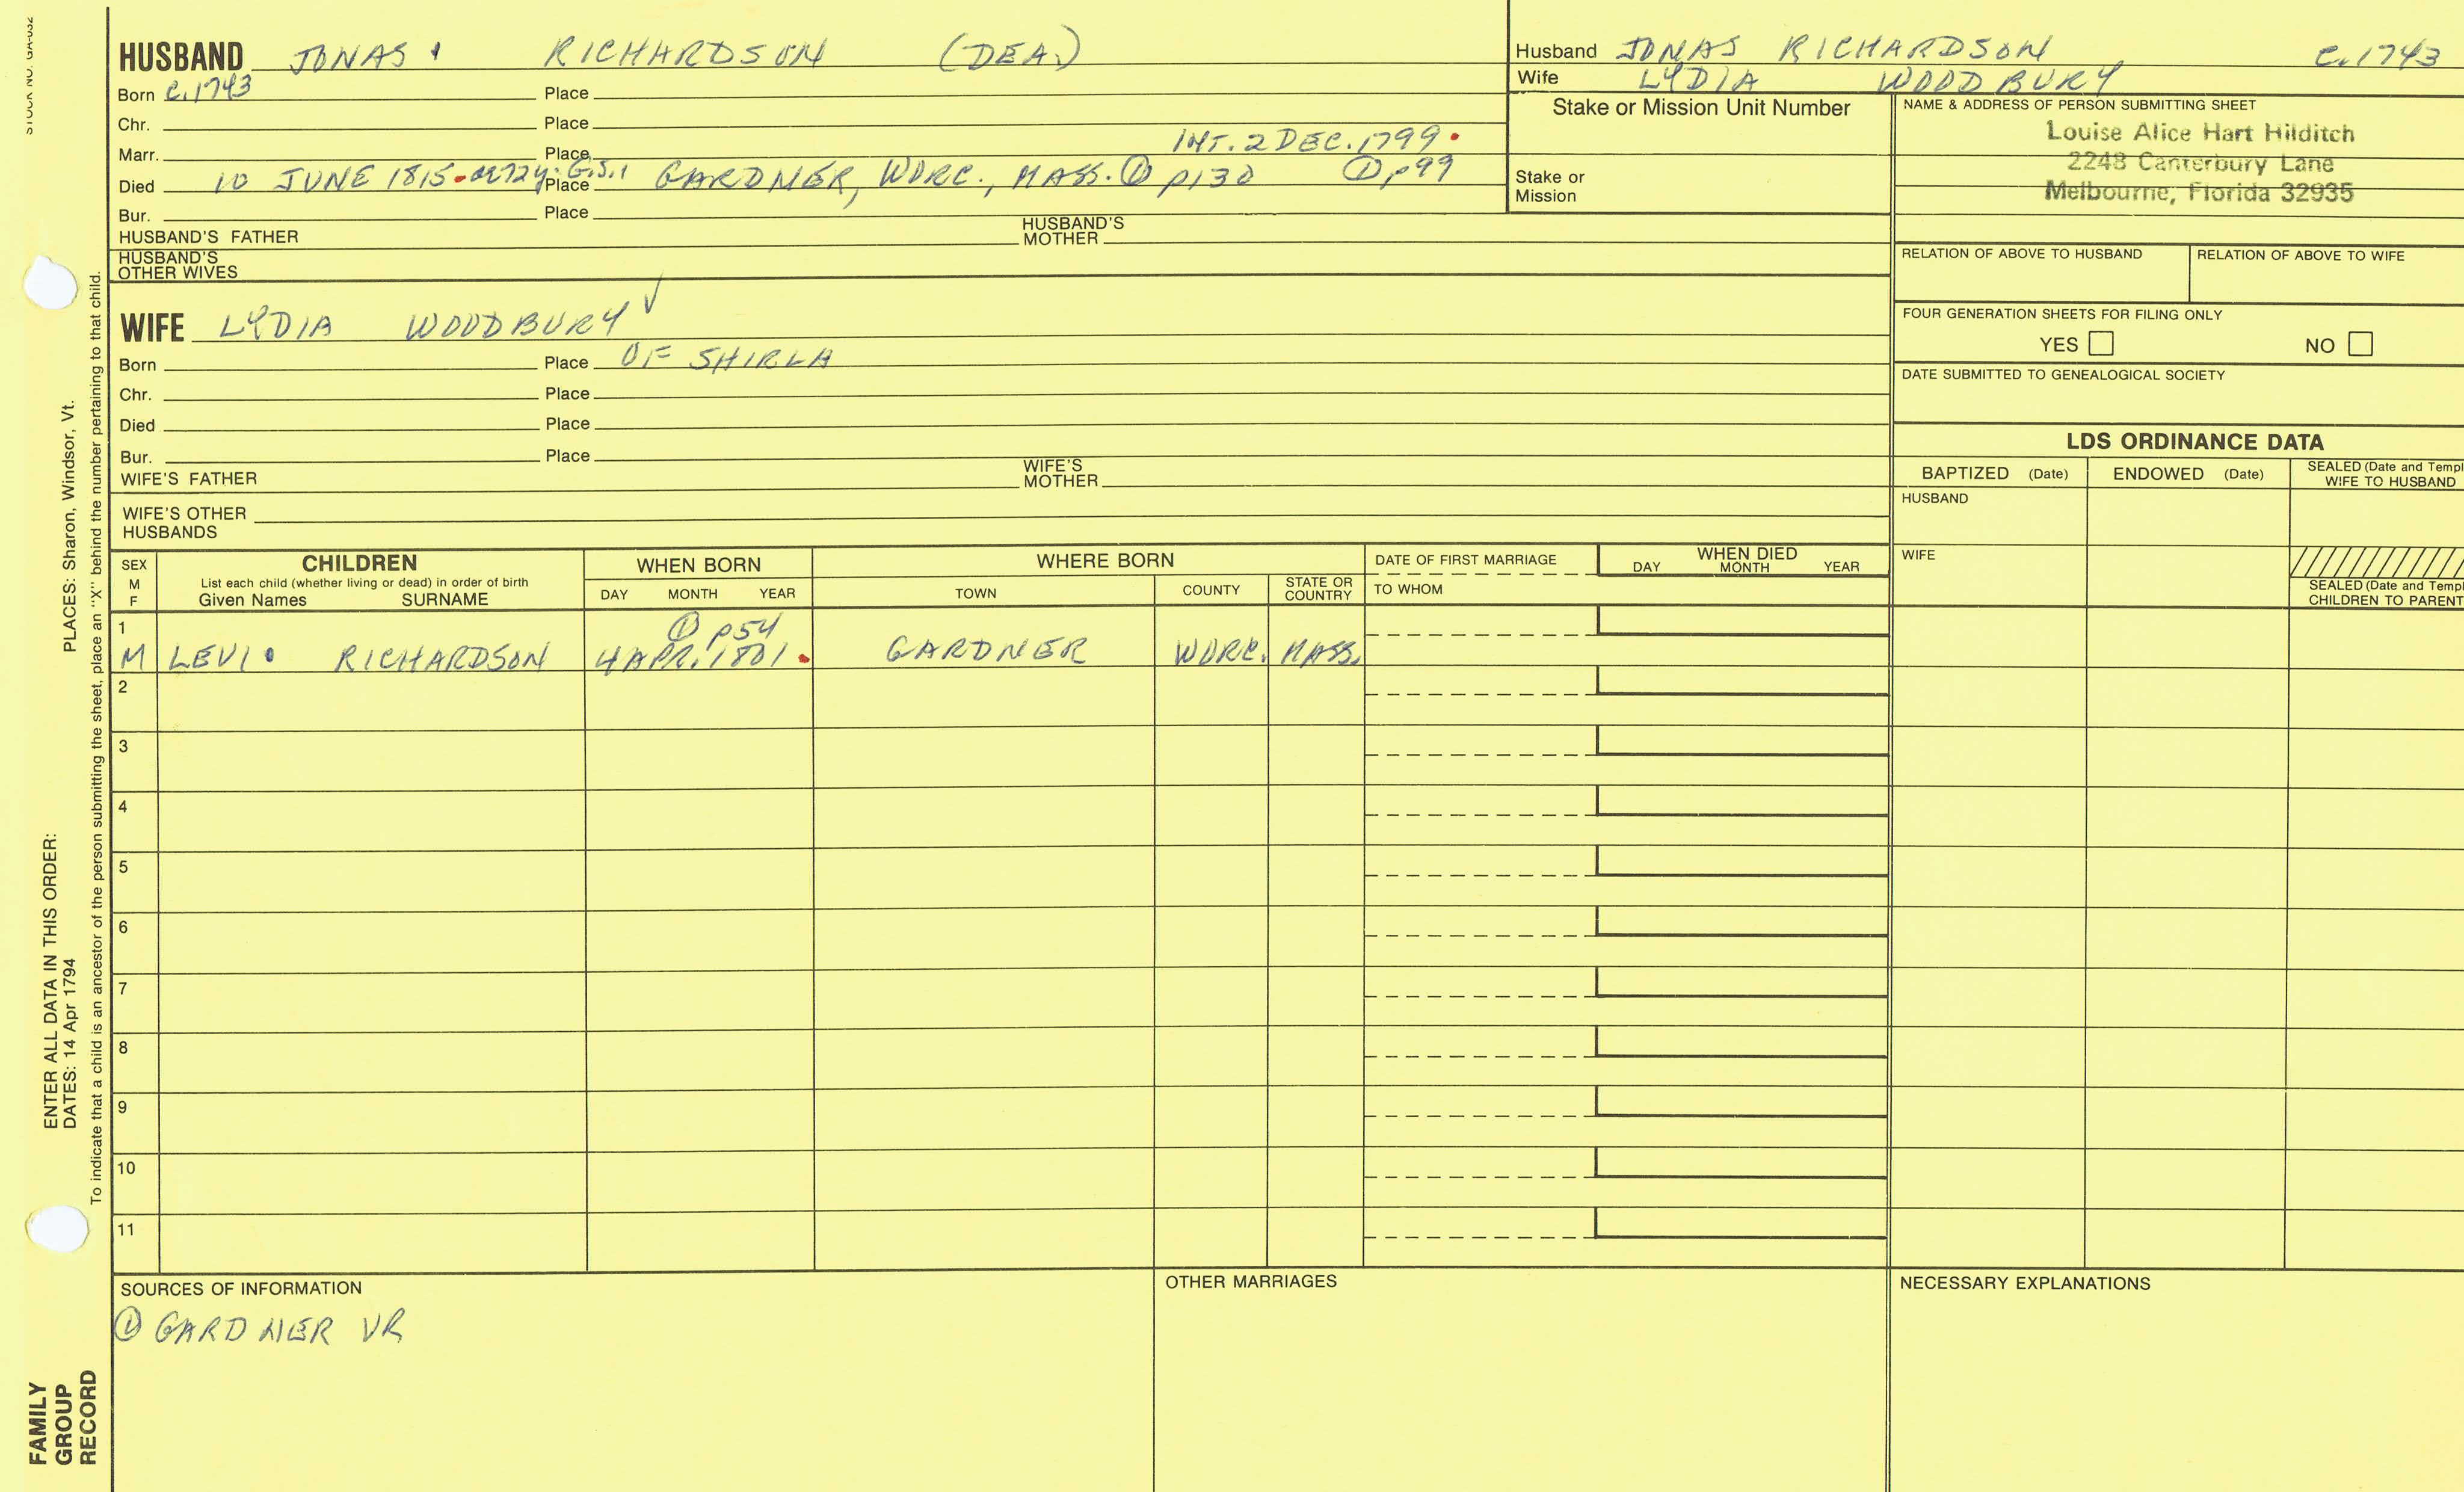 HUSBAND JONAS RICHARDSON (DEA.)
Born c.1743 Place
Chr. Place
Marr. Place INT. 2 DEC. 1799.
Died 10 JUNE 1815. ae 72y. G.S.1 Place GARDNER, WORC., MASS. ① p130 ① p99
Bur. Place
HUSBAND'S FATHER HUSBAND'S MOTHER
HUSBAND'S OTHER WIVES
Husband JONAS RICHARDSON c.1743
Wife LYDIA WOODBURY
Stake or Mission Unit Number
Stake or Mission
NAME & ADDRESS OF PERSON SUBMITTING SHEET
Louise Alice Hart Hilditch
2248 Canterbury Lane
Melbourne, Florida 32935
RELATION OF ABOVE TO HUSBAND RELATION OF ABOVE TO WIFE
FOUR GENERATION SHEETS FOR FILING ONLY
YES NO
DATE SUBMITTED TO GENEALOGICAL SOCIETY
WIFE LYDIA WOODBURY ✓
Born Place OF SHIRLA
Chr. Place
Died Place
Bur. Place
WIFE'S FATHER WIFE'S MOTHER
WIFE'S OTHER HUSBANDS
LDS ORDINANCE DATA
BAPTIZED (Date) ENDOWED (Date) SEALED (Date and Templ
WIFE TO HUSBAND
HUSBAND
WIFE
SEALED (Date and Templ
CHILDREN TO PARENT
SEX M F
CHILDREN
List each child (whether living or dead) in order of birth
Given Names SURNAME
WHEN BORN
DAY MONTH YEAR
WHERE BORN
TOWN COUNTY STATE OR COUNTRY
DATE OF FIRST MARRIAGE
TO WHOM
WHEN DIED
DAY MONTH YEAR
1 ① p54
M LEVI RICHARDSON 4 APR. 1801. GARDNER WORC. MASS.
2
3
4
5
6
7
8
9
10
11
SOURCES OF INFORMATION
① GARDNER VR
OTHER MARRIAGES
NECESSARY EXPLANATIONS
STOCK NO. GA-032
PLACES: Sharon, Windsor, Vt.
To indicate that a child is an ancestor of the person submitting the sheet, place an "X" behind the number pertaining to that child.
ENTER ALL DATA IN THIS ORDER:
DATES: 14 Apr 1794
FAMILY
GROUP
RECORD